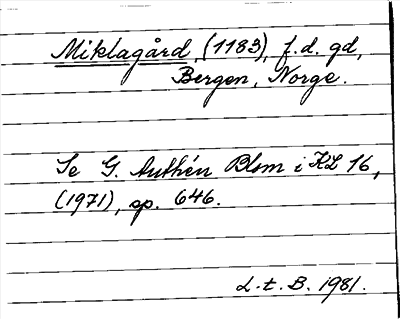 Miklagård, (1183), f.d. gd,
Bergen, Norge.
Se G. Authén Blom i KL 16,
(1971), sp. 646.
L.t.B. 1981.